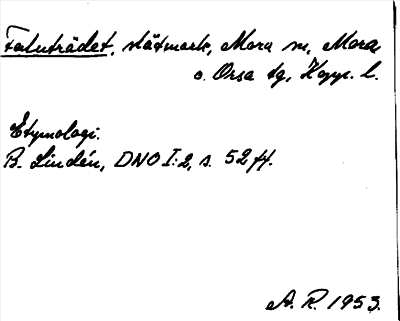 Faluträdet, slåtmark, Mora sn, Mora
o. Orsa tg, Kopp. l.
Etymologi.
B. Lindén, DNO I:2, s. 52 ff.
A. R. 1953.